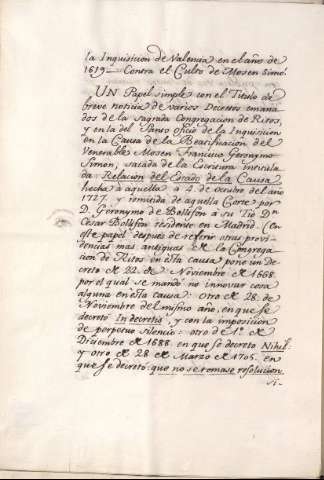 la Inquisicion de Valencia en el año de
1619 — Contra el Culto de Mosen Simo.
UN Papel simple con el Titulo de
breve noticia de varios Decretos emana
dos de la sagrada Congregacion de Ritos,
y en la del Santo oficio de la Inquisicion
en la Causa de la Beatificacion del
Venerable Mosen Francisco Geronymo
Simon, sacada de la Escritura intitula
da Relacion del Estado de la Causa
hecha à aquella à 4 de octubre del año
1727. y remitida de aquella Corte por
D. Geronymo de Bollifon à su Tio Dn
Cesar Bollifon residente en Madrid. En
este papel despues de referir otras provi-
dencias mas antiguas de la Congrega-
cion de Ritos en esta causa pone un de
creto de 22. de Noviembre de 1668.
por el qual se mandò no innovar cosa
alguna en esta causa: otro de 28. de
Noviembre del mismo año, en que se
decretò In decretis, y con la imposicion
de perpetuo silencio: otro de 1º de
Diciembre de 1688. en que se decretò Nihil.
y otro de 28 de Marzo de 1705. en
que se decretò: que no se tomase resolucion.
si-